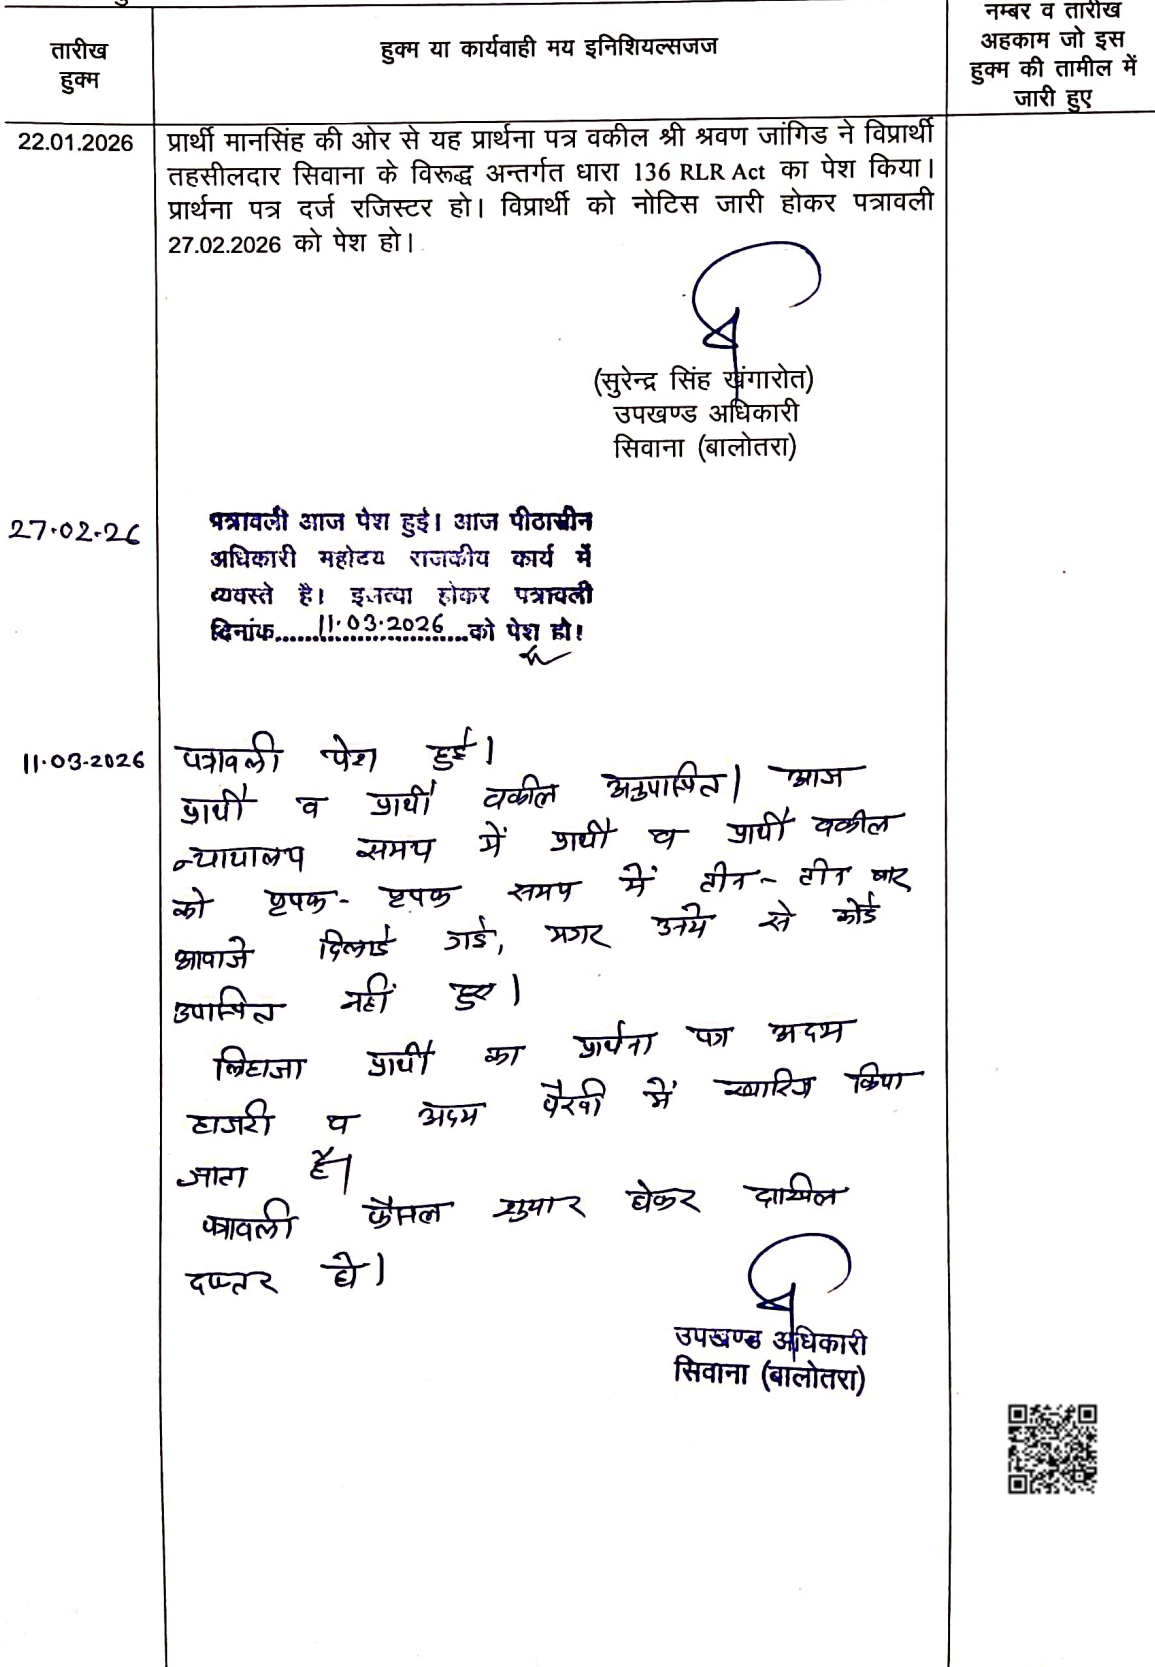 तारीख
हुक्म
हुक्म या कार्यवाही मय इनिशियल्सजज
नम्बर व तारीख
अहकाम जो इस
हुक्म की तामील में
जारी हुए
22.01.2026
प्रार्थी मानसिंह की ओर से यह प्रार्थना पत्र वकील श्री श्रवण जांगिड ने विप्रार्थी
तहसीलदार सिवाना के विरूद्ध अन्तर्गत धारा 136 RLR Act का पेश किया।
प्रार्थना पत्र दर्ज रजिस्टर हो। विप्रार्थी को नोटिस जारी होकर पत्रावली
27.02.2026 को पेश हो।
(सुरेन्द्र सिंह खंगारोत)
उपखण्ड अधिकारी
सिवाना (बालोतरा)
27.02.26
पत्रावली आज पेश हुई। आज पीठासीन
अधिकारी महोदय राजकीय कार्य में
व्यवस्ते है। इजत्वा होकर पत्रावली
दिनांक....11.03.2026....को पेश हो!
11.03.2026
पत्रावली पेश हुई।
प्रार्थी व प्रार्थी वकील अनुपस्थित। आज
न्यायालय समय में प्रार्थी व प्रार्थी वकील
को पृथक- पृथक समय में तीन- तीन बार
आवाजे दिलाई गई, मगर उनमे से कोई
उपस्थित नहीं हुए।
लिहाजा प्रार्थी का प्रार्थना पत्र अदम
हाजरी व अदम पैरवी में खारिज किया
जाता है।
पत्रावली फैसल शुमार होकर दाखिल
दफ्तर हो।
उपखण्ड अधिकारी
सिवाना (बालोतरा)